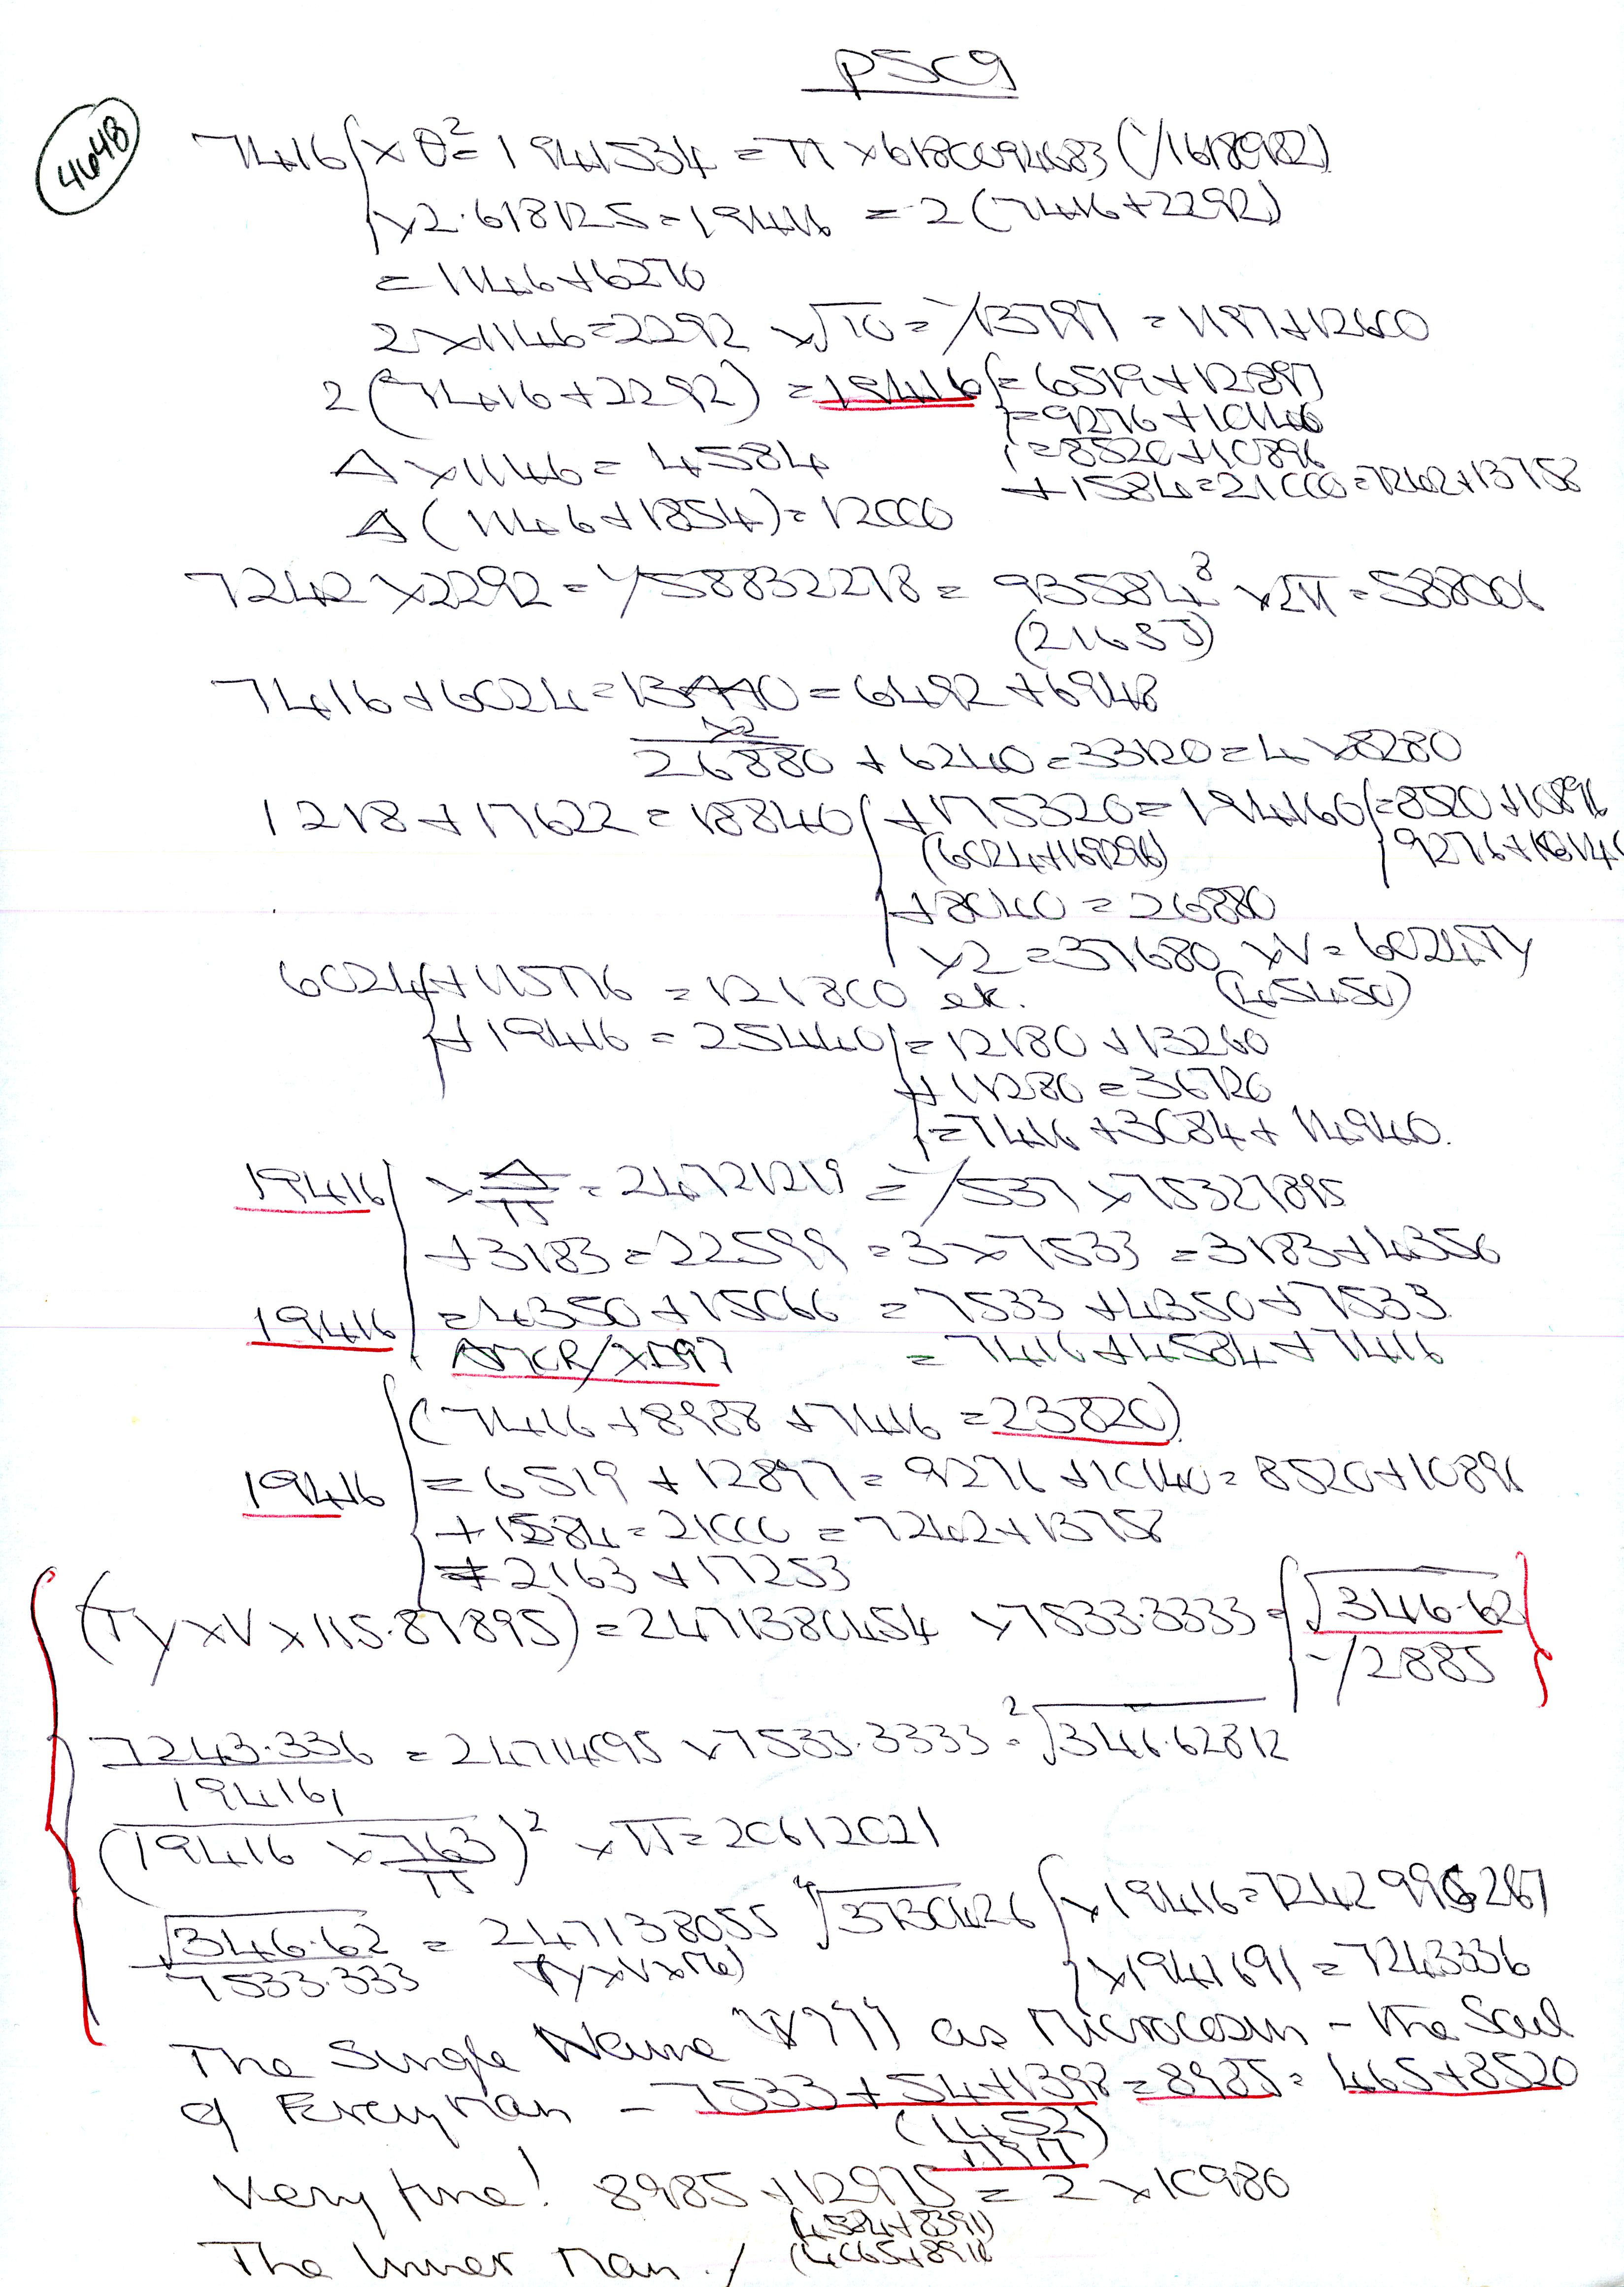 P5C9
4648
7416 { x θ² = 1941534 = π x 6180094683 (√1618982)
x 2.618125 = 19416 = 2(7416+2292)
= 1146+6270
2 x 1146 = 2292 x √10 = √13797 = 1197+12600
2(7416+2292) = 19416 { = 6519+12897
= 9276+10140
= 8520+10896
Δ x 1146 = 4584
+1584 = 21000 = 7242+13758
Δ(1146+1854) = 12000
7242 x 2292 = √58832278 = 93584⁸ x 2π = 588006
7416+6024 = 13440 = 6492+6948
x2
26880 + 6240 = 33120 = 4 x 8280
1218+17622 = 18840 { +175320 = 194160 { = 8520+10896
(6024+169296) 9276+10140
+8040 = 26880
x2 = 37680 x V = 6024 Ty
(45450)
6024 { +115776 = 121800 ek.
+19416 = 25440 { = 12180+13260
+11280 = 36720
= 7416+3084+14940.
19416 { x Δ/π = 24721219 = √537 x 75327895
+3183 = 22599 = 3 x 7533 = 3183+4350
19416 = 4350+15066 = 7533+4350+7533
= 7416+4584+7416
(7416+8988+7416 = 23820)
19416 { = 6519+12897 = 9276+10140 = 8520+10896
+1584 = 21000 = 7242+13758
= 2163+17253
(Ty x V x 115.87895) = 2471380454 x 7533.3333 = { √346.62
√2885
7243.336 = 24714095 x 7533.3333 = ²√346.62812
19416
(19416 x 763/π)² x π = 20612021
√346.62 = 247138055 ⁴√3730426 { x 19416 = 7242996287
7533.333 (Ty x V x 116) x 1941691 = 7243336
The Single Name as Microcosm – the Soul
of Everyman – 7533+54+1398 = 8985 = 465+8520
(1452)
Very fine! 8985+12975 = 2 x 10980
(4584+8391)
The Inner Man. / (4065+8910